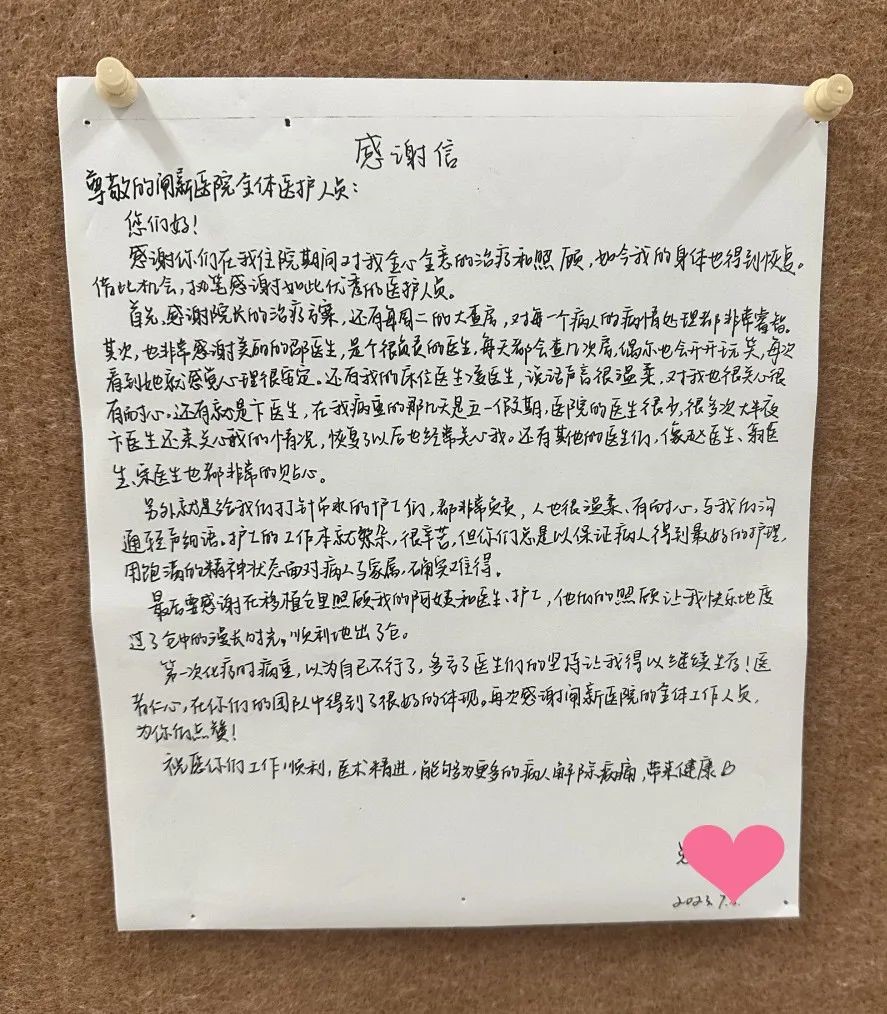 感谢信
尊敬的闸新医院全体医护人员：
您们好！
感谢你们在我住院期间对我全心全意的治疗和照顾，如今我的身体也得到恢复。
借此机会，挚感谢如此优秀的医护人员。
首先，感谢院长的治疗方案，还有每周二的大查房，对每一个病人的病情处理都非常睿智。
其次，也非常感谢美丽的邵医生，是个很负责的医生，每天都会查几次房，偶尔也会开开玩笑，每次
看到她就感觉心理很安定。还有我的床位医生凌医生，说话声音很温柔，对我也很关心很
有耐心。还有就是卞医生，在我病重的那几天是五一假期，医院的医生很少，很多次大半夜
卞医生还来关心我的情况，恢复了以后也经常关心我。还有其他的医生们，像赵医生、翁医
生、宋医生也都非常的贴心。
另外就是给我们打针吊水的护士们，都非常负责，人也很温柔、有耐心，与我的沟
通轻声细语。护士的工作本就繁杂，很辛苦，但你们总是以保证病人得到最好的护理，
用饱满的精神状态面对病人与家属，确实难得。
最后要感谢在移植仓里照顾我的阿姨和医生、护士，他们的照顾让我快乐地度
过了仓中的漫长时光，顺利地出了仓。
第一次化疗时病重，以为自己不行了，多亏了医生们的坚持让我得以继续生存！医
者仁心，在你们的团队中得到了很好的体现。再次感谢闸新医院的全体工作人员，
为你们点赞！
祝愿你们工作顺利，医术精进，能够为更多的病人解除病痛，带来健康
2023.7.